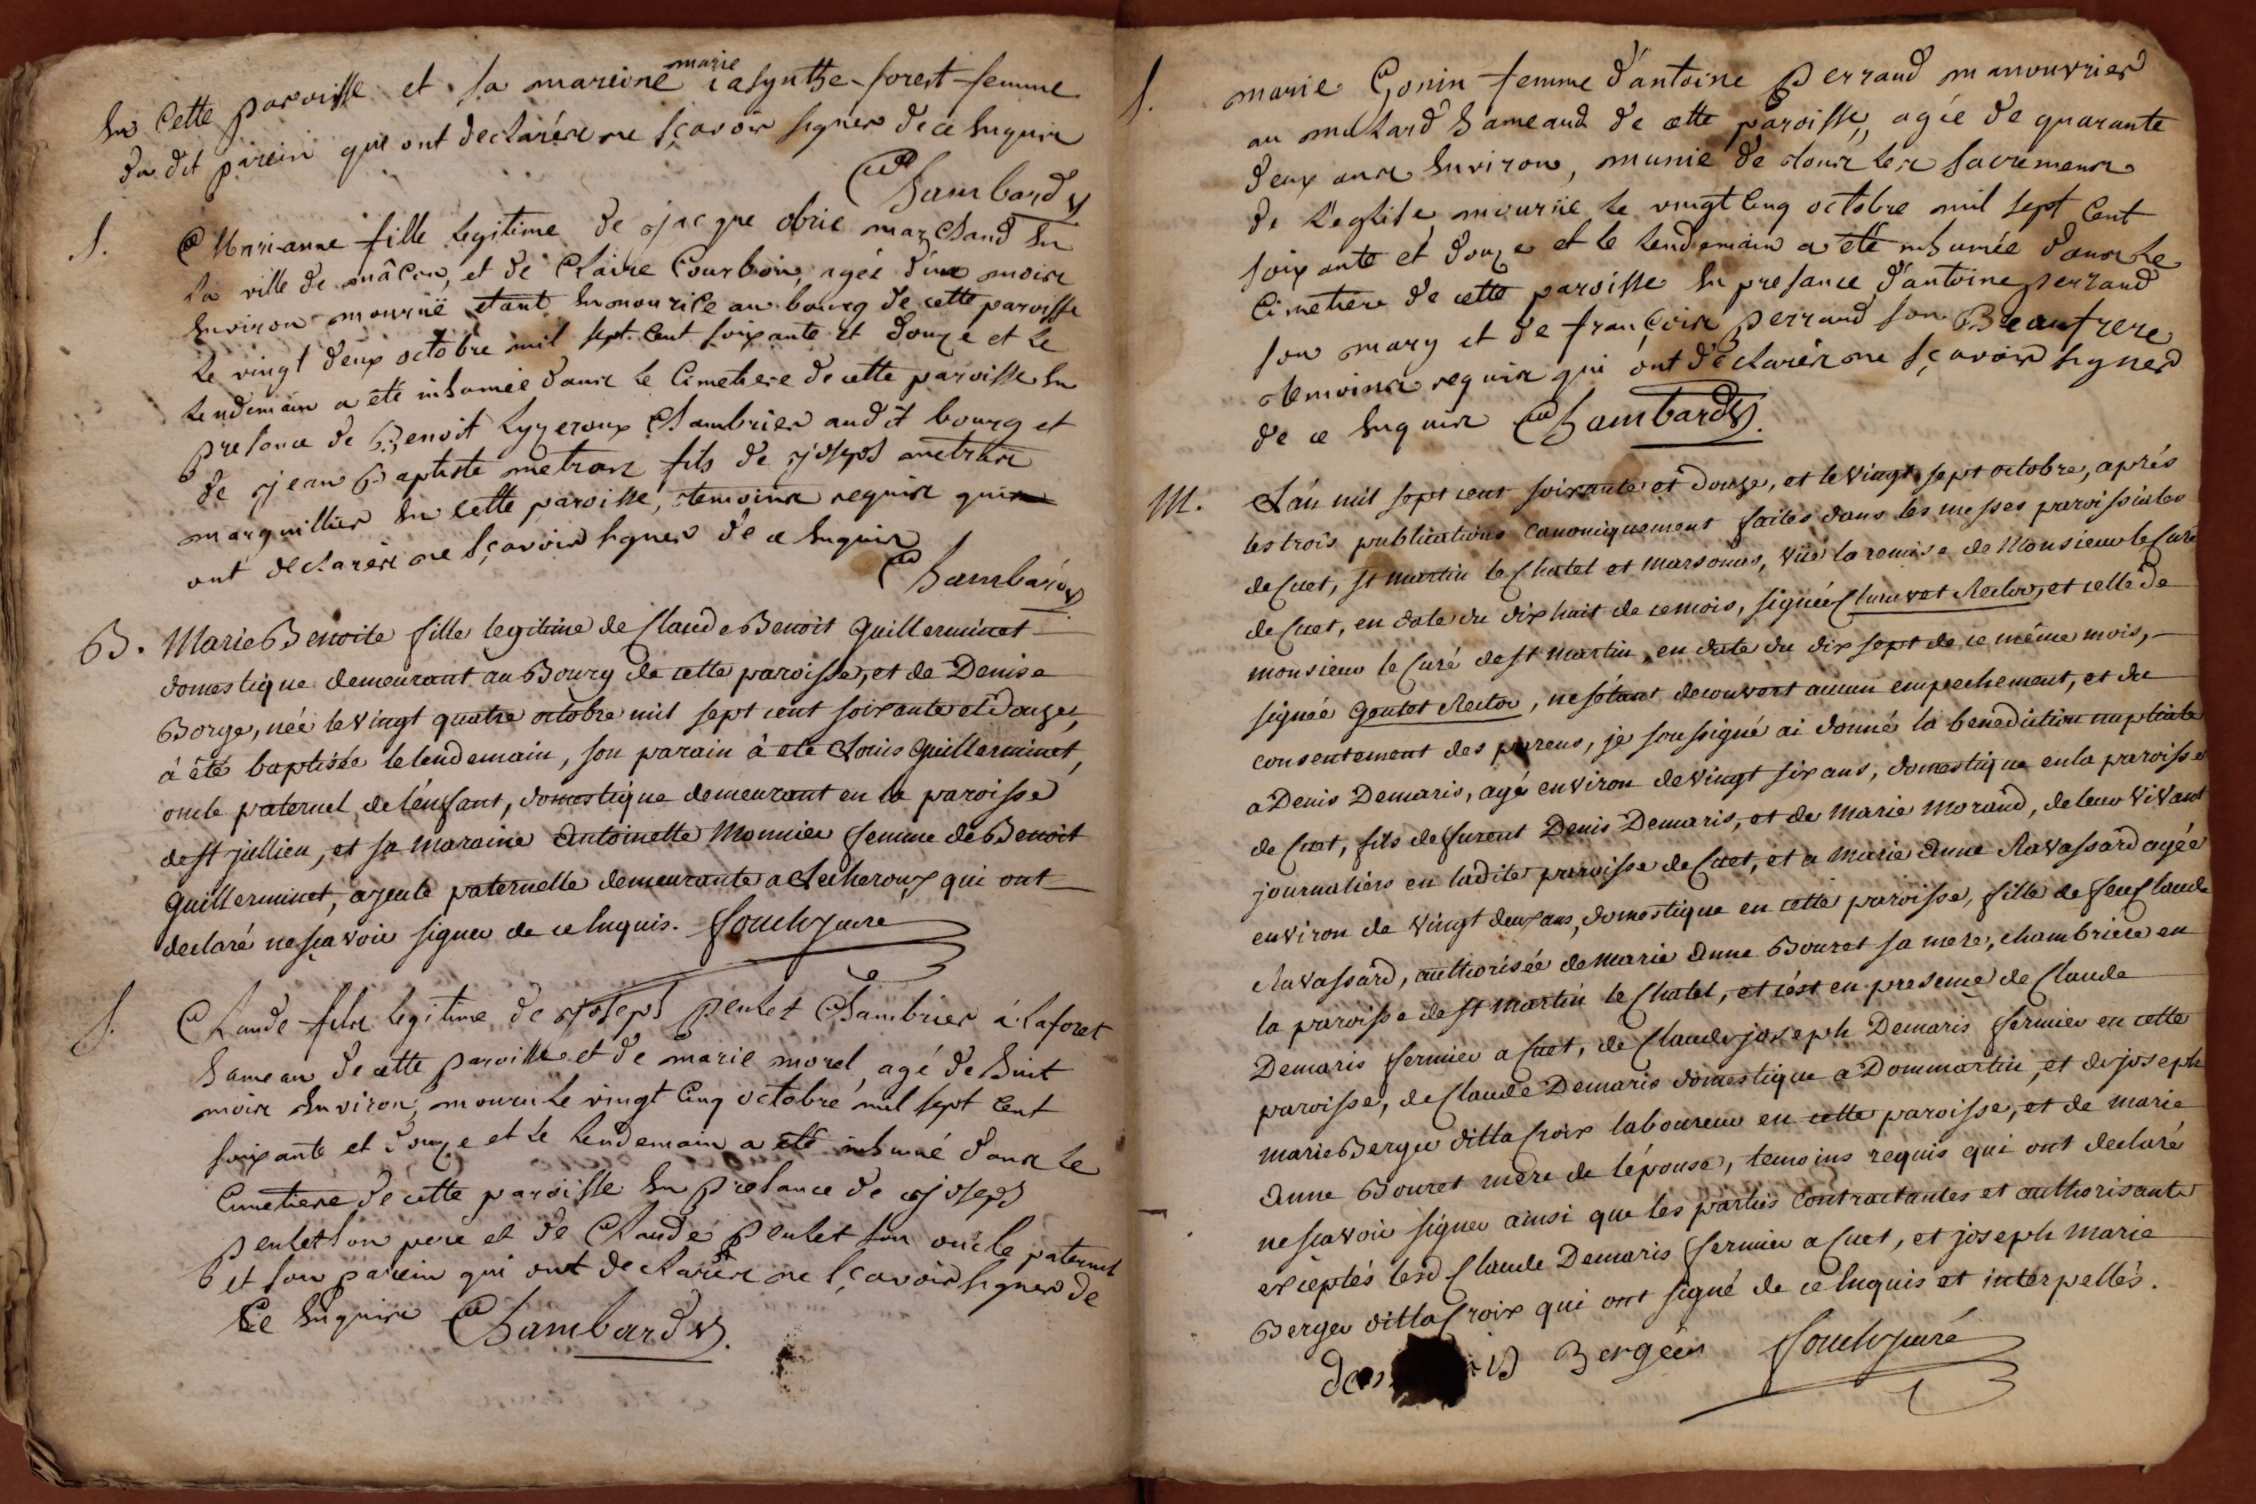 en cette paroisse et sa mareine marie iasynthe forest femme
du dit parein qui ont declarés ne sçavoir signer de ce enquis
Chambard v
S.
Marianne fille legitime de jacque obrie marchand en
la ville de mâcon, et de Claire Courbon, agée d'un mois
environ mourüe etant en nourice au bourg de cette paroisse
le vingt deux octobre mil sept cent soixante et douze et le
lendemain a eté inhumée dans le Cimetiere de cette paroisse en
presence de Benoit Chambrier au dit bourg et
de jean Baptiste metras fils de joseph metras
marguillier en cette paroisse, temoins requis qui
ont declarés ne sçavoir signer de ce enquis
Chambard v
B. Marie Benoite fille legitime de Claude Benoit Guillerminet
domestique demeurant au Bourg de cette paroisse, et de Denise
Borge, née le vingt quatre octobre mil sept cent soixante et douze,
à été baptisée le lendemain, son parain à eté Louis Guillerminet,
oncle paternel de l'enfant, domestique demeurant en la paroisse
de st jullien, et sa maraine Antoinette Monnier femme de Benoit
Guillerminet, ayeule paternelle demeurante a Lecheroux qui ont
declaré ne sçavoir signer de ce enquis.
S.
Claude fils legitime de joseph penset Chambrier à laforet
hameau de cette paroisse et de marie morel, agé de huit
mois environ, mouru le vingt cinq octobre mil sept cent
soixante et douze et le lendemain a eté inhumé dans le
Cimetiere de cette paroisse en presance de joseph
penset son pere et de Claude penset son oncle paternel
et son parein qui ont declarés ne sçavoir signer de
Ce enquis Chambard v.
S.
marie Gonin femme d'antoine perraud manouvrier
au hameaud de cette paroisse, agée de quarante
deux ans environ, munie de tous les sacremens
de l'eglise, mourüe le vingt cinq octobre mil sept cent
soixante et douze et le lendemain a eté inhumée dans le
Cimetiere de cette paroisse en presance d'antoine perraud
son mary et de françois perraud son Beaufrere
temoins requis qui ont déclarés ne sçavoir signer
de ce enquis Chambard v.
M. L'an mil sept cent soixante et douze, et le vingt sept octobre, aprés
les trois publications canoniquement faites dans les messes paroissiales
de Cuet, st martin le Chatel et marsonas, vüe la remise de Monsieur le Curé
de Cuet, en date du dix huit de ce mois, signée Rector, et celle de
monsieur le Curé de st martin, en date du dix sept de ce même mois,
signée Goutot Rector, ne s'étant decouvert aucun empechement, et du
consentement des parens, je soussigné ai donné la benediction nuptiale
a Denis Demaris, agé environ de vingt six ans, domestique en la paroisse
de Cuet, fils de furent Denis Demaris, et de marie morand, de leur vivant
journaliers en ladite paroisse de Cuet, et a marie anne Ravassard agée
environ de vingt deux ans, domestique en cette paroisse, fille de feu Claude
Ravassard, authorisée de marie anne Bouret sa mere, chambriere en
la paroisse de st martin le Chatel, et c'est en presence de Claude
Demaris fermier a Cuet, de Claude joseph Demaris fermier en cette
paroisse, de Claude Demaris domestique a Dommartin, et de joseph
marie Berger dit la Croix laboureur en cette paroisse, et de marie
anne Bouret mere de l'épouse, temoins requis qui ont declaré
ne sçavoir signer ainsi que les parties contractantes et authorisante
exceptés lesd Claude Demaris fermier a Cuet, et joseph marie
Berger dit la Croix qui ont signé de ce enquis et interpellés.
Berger